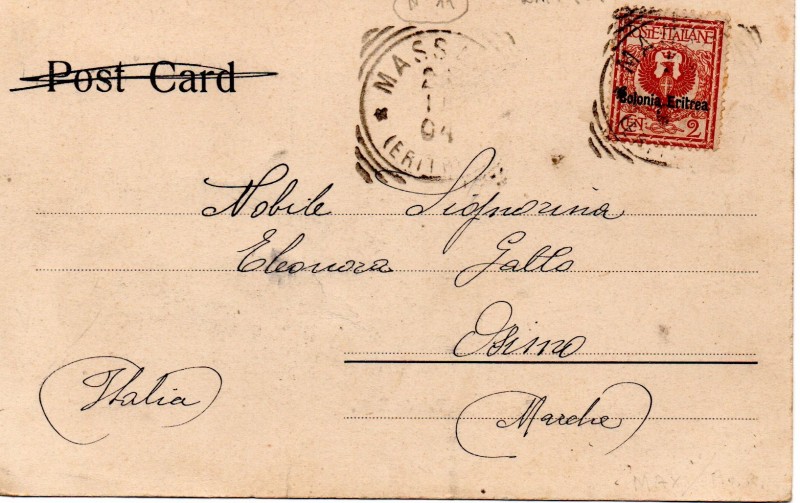 N 11
Post Card
MASS
04
(ERIT
POSTE·ITALIANE
MA
Colonia Eritrea
CEN. 2
Nobile Signorina
Eleonora Gallo
Osimo
(Italia)
(Marche)